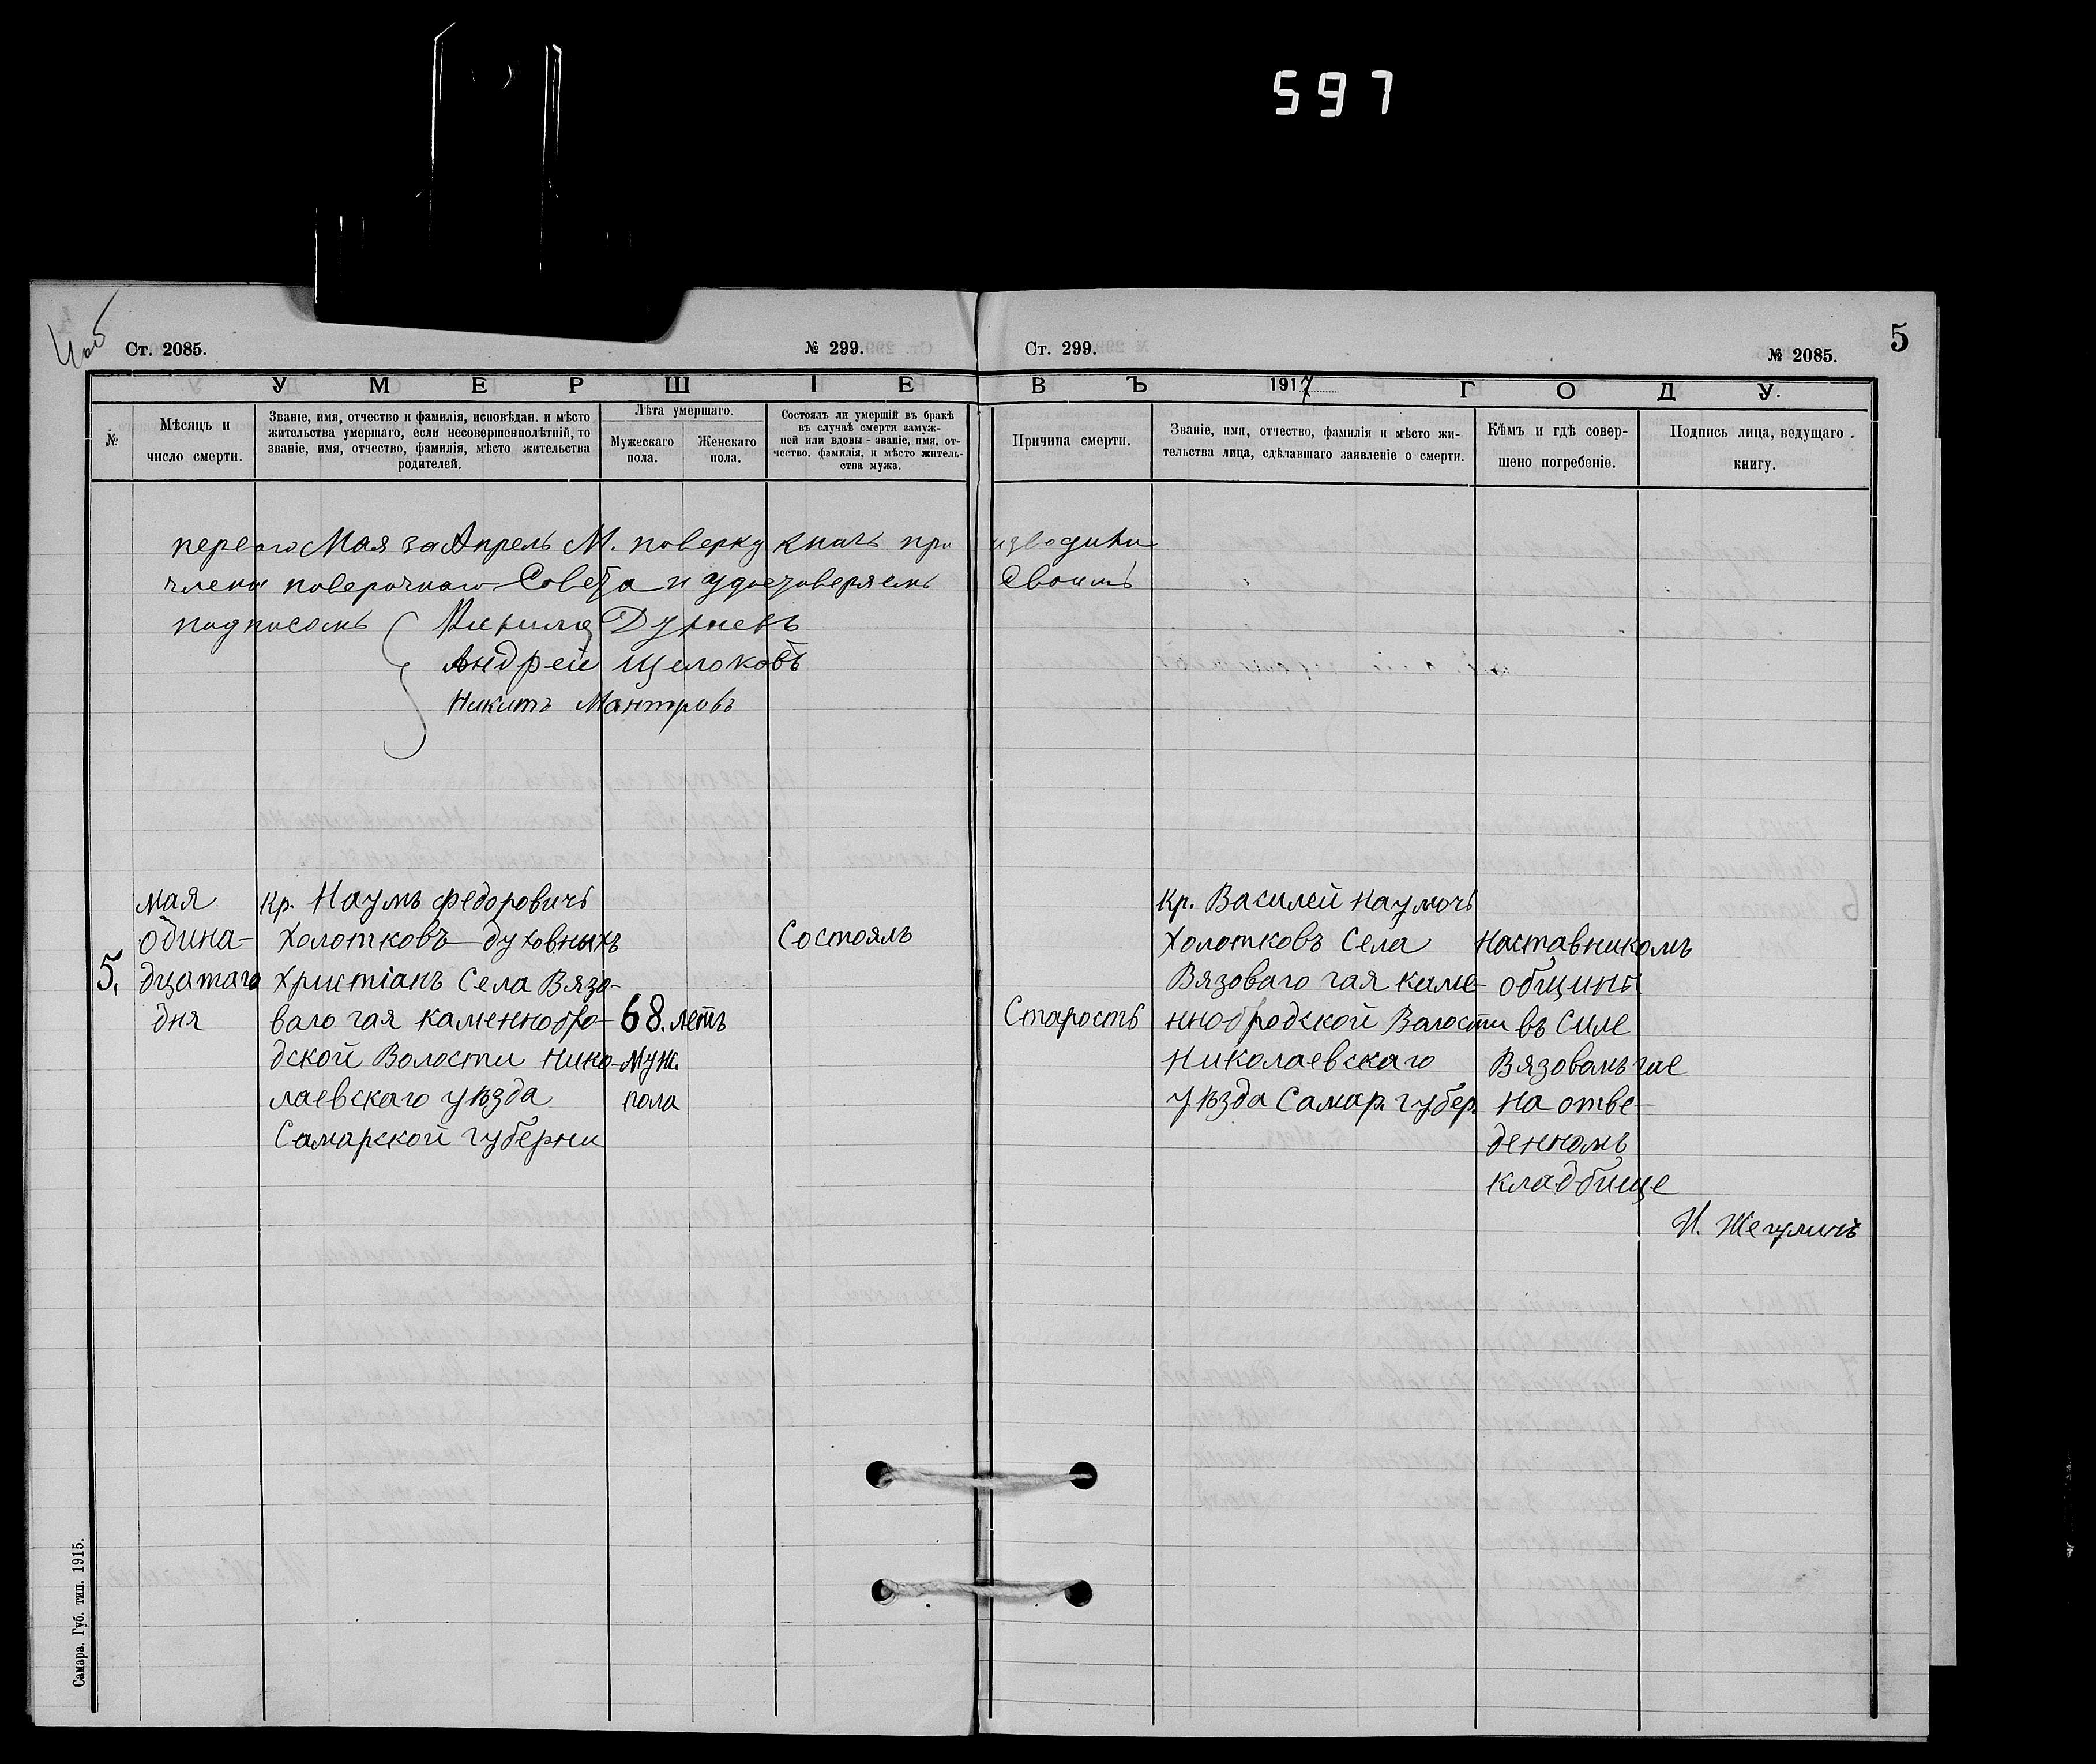 597
5
Ст. 2085.
№ 299.
Ст. 299.
№ 2085.
УМЕРШІЕ
ВЪ 1917 ГОДУ.
№
Мѣсяцъ и
число смерти.
Званіе, имя, отчество и фамилія, исповѣдан. и мѣсто
жительства умершаго, если несовершеннолѣтній, то
званіе, имя, отчество, фамилія, мѣсто жительства
родителей.
Лѣта умершаго.
Мужескаго
пола.
Женскаго
пола.
Состоялъ ли умершій въ бракѣ
въ случаѣ смерти замуж-
ней или вдовы - званіе, имя, от-
чество. фамилія, и мѣсто житель-
ства мужа.
Причина смерти.
Званіе, имя, отчество, фамилія и мѣсто жи-
тельства лица, сдѣлавшаго заявленіе о смерти.
Кѣмъ и гдѣ совер-
шено погребеніе.
Подпись лица, ведущаго
книгу.
первого Мая за Апрель М. поверку книгъ производили
члены поверочнаго Совета и удостоверяемъ Своимъ
подписомъ
Андрей Щелоковъ
Никитъ Мантровъ
5.
мая
одина-
дцатаго
дня
кр. Наумъ федоровичъ
Холотковъ духовныхъ
христіанъ Села Вязо-
ваго гая каменнобро-
дской Волости Нико-
лаевскаго уѣзда
Самарской губерни
68. летъ
Муж.
пола
Состоялъ
Старость
кр. Василей Наумочъ
Холотковъ Села
Вязоваго гая каме-
ннобродской Волости
Николаевскаго
уѣзда Самар. губер.
Наставникомъ
общины
въ Силе
Вязовамъ гае
на отве-
денномъ
кладбище
И. Жегулинъ
Самара. Губ. тип. 1915.